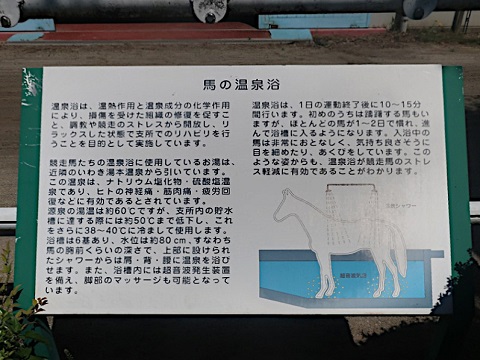 馬の温泉浴
温泉浴は、温熱作用と温泉成分の化学作用
により、損傷を受けた組織の修復を促すこ
と、調教や競走のストレスから開放し、リ
ラックスした状態で支所でのリハビリを行
うことを目的として実施しています。
競走馬たちの温泉浴に使用しているお湯は、
近隣のいわき湯本温泉から引いています。
この温泉は、ナトリウム塩化物・硫酸塩温
泉であり、ヒトの神経痛・筋肉痛・疲労回
復などに有効であるとされています。
源泉の湯温は約60℃ですが、支所内の貯水
槽に達する際には約50℃まで低下し、これ
をさらに38～40℃に冷まして使用します。
浴槽は6基あり、水位は約80cm、すなわち
馬の腕前くらいの深さで、上部に設けられ
たシャワーからは肩・背・腰に温泉を浴び
せます。また、浴槽内には超音波発生装置
を備え、脚部のマッサージも可能となって
います。
温泉浴は、1日の運動終了後に10～15分
間行います。初めのうちは躊躇する馬もい
ますが、ほとんどの馬が1～2日で慣れ、進
んで浴槽に入るようになります。入浴中の
馬は非常におとなしく、気持ち良さそうに
目を細めたり、あくびをしています。この
ような姿からも、温泉浴が競走馬のストレ
ス軽減に有効であることがわかります。
シャワー